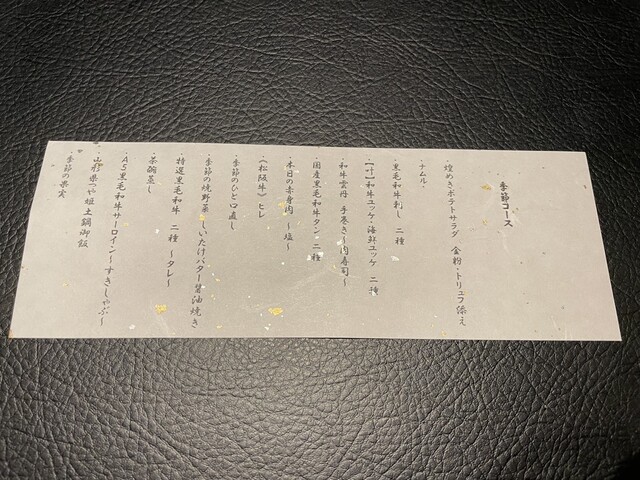 季節コース
・煌めきポテトサラダ 金粉・トリュフ添え
・ナムル
・黒毛和牛刺し 二種
・【叶】和牛ユッケ・海鮮ユッケ 二種
・和牛雲丹 手巻き~肉寿司~
・国産黒毛和牛タン 二種
・本日の赤身肉 ~塩~
・【松阪牛】ヒレ
・季節のひと口直し
・季節の焼野菜 しいたけバター醤油焼き
・特選黒毛和牛 二種 ~タレ~
・茶碗蒸し
・A5黒毛和牛サーロイン~すきしゃぶ~
・山形県つや姫土鍋御飯
・季節の果実